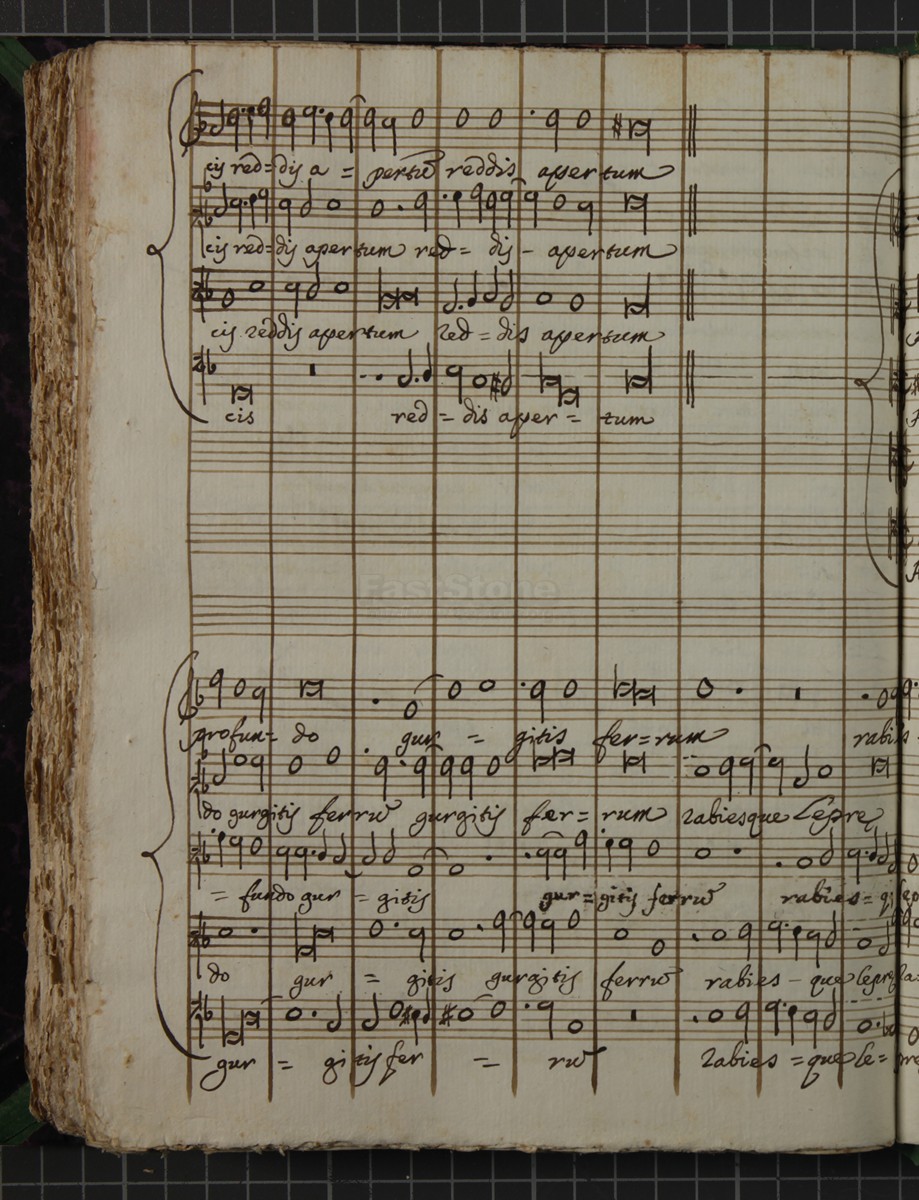 cis red=dis a = pertũ reddis apertum
cis red=dis apertum red= dis - apertum
cis reddis apertum red=dis apertum
cis red = dis aper = tum
FastStone
profun= do gur = gitis fer=rum rabis-
do gurgitis ferrũ gurgitis fer= rum rabiesque leprę
= fundo gur = gitis gur=gitis ferrũ rabies=
do gur = gitis gurgitis ferrũ rabies - que
gur = gitis fer = rũ rabies =que le=